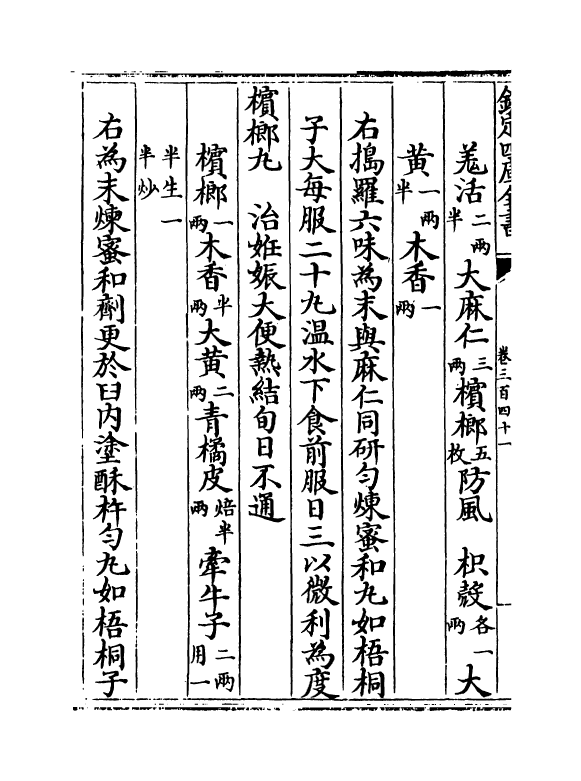 欽定四庫全書
卷三百四十一
羗活二兩半大麻仁三兩檳榔五枚防風枳殻各一兩大
黄一兩半木香一兩
右搗羅六味為末與麻仁同研勻煉蜜和丸如梧桐
子大每服二十丸温水下食前服日三以微利為度
檳榔丸治姙娠大便熱結旬日不通
檳榔一兩木香半兩大黄二兩青橘皮焙半兩牽牛子二兩用一
半生一半炒
右為末煉蜜和劑更於臼内塗酥杵勻丸如梧桐子